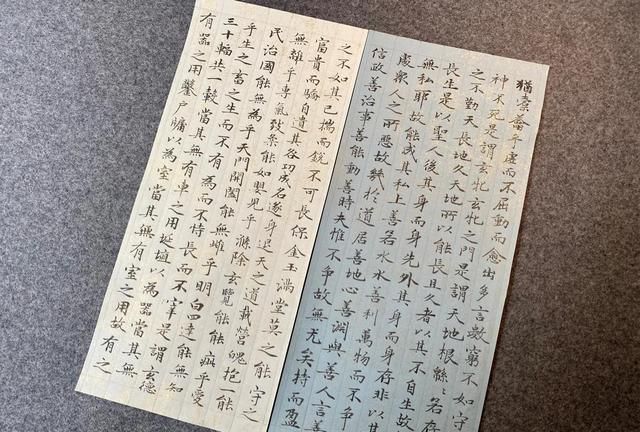 猶橐籥乎虛而不屈動而愈出多言數窮不如守
神不死是謂玄牝玄牝之門是謂天地根緜〻若存
之不勤天長地久天地所以能長且久者以其不自生故
長生是以聖人後其身而身先外其身而身存非以其
無私耶故能成其私上善若水水善利萬物而不爭
處衆人之所惡故幾於道居善地心善淵與善人言善
信政善治事善能動善時夫惟不爭故無尤矣持而盈
之不如其已揣而銳不可長保金玉滿堂莫之能守之
富貴而驕自遺其咎功成名遂身退天之道載營魄抱一能
無離乎專氣致柔能如嬰兒乎滌除玄覽能能疵乎愛
民治國能無為乎天門開闔能無雌乎明白四達能無知
乎生之畜之生而不有為而不恃長而不宰是謂玄德
三十輻共一轂當其無有車之用埏埴以為器當其無
有器之用鑿戶牖以為室當其無有室之用故有之